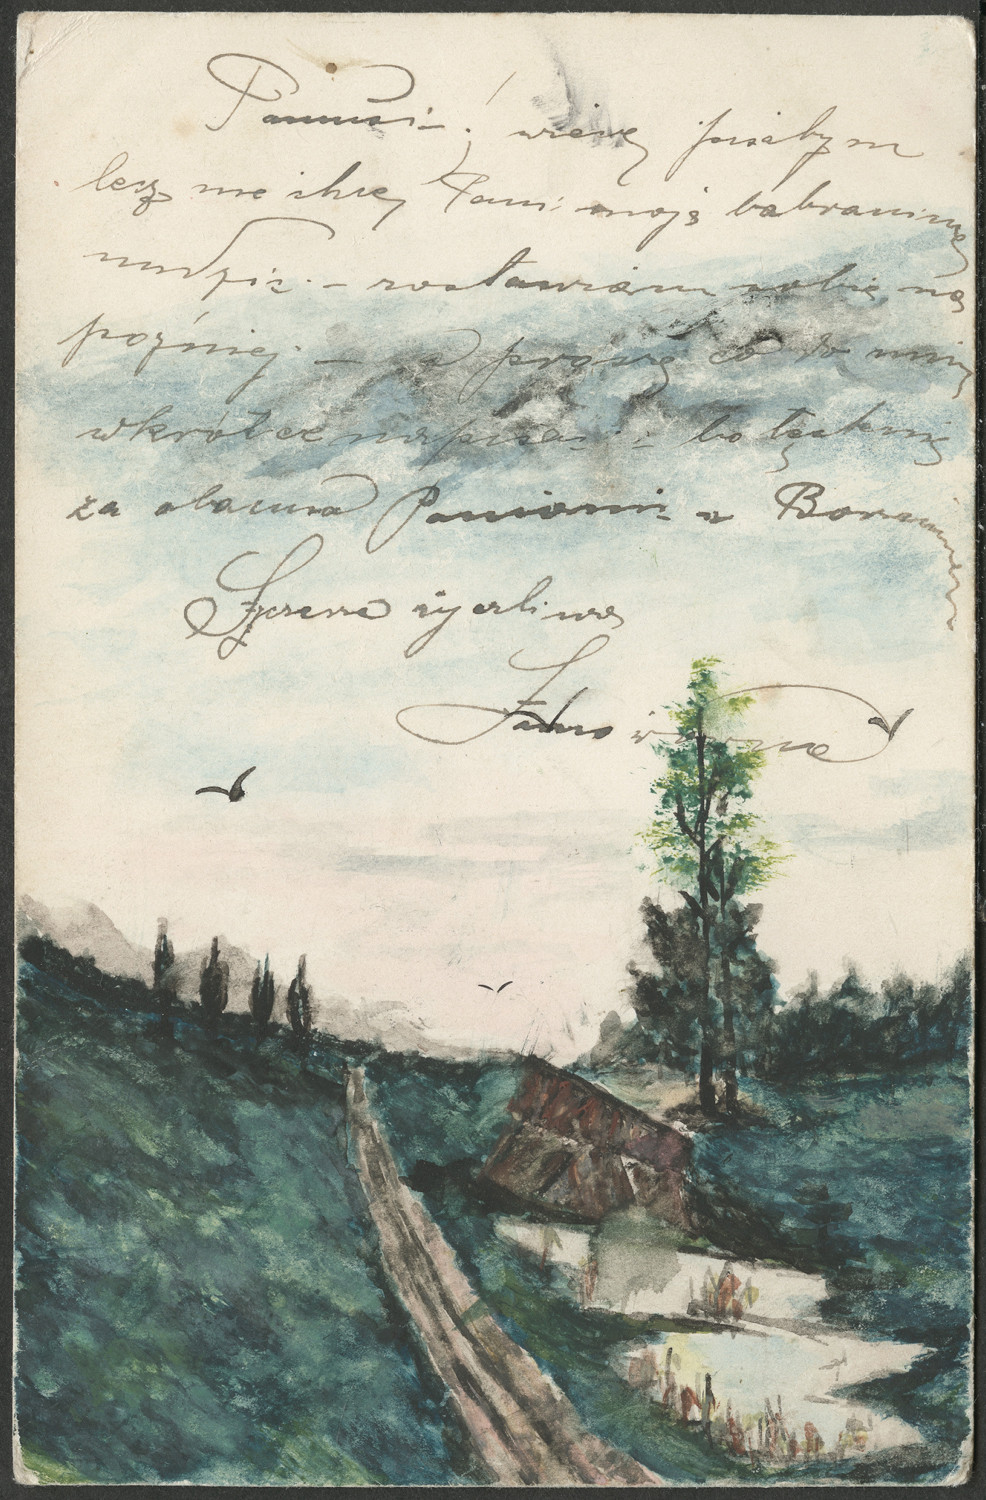 Paniusi! więcej pisałbym
lecz nie chcę Pani moją babraniną
nudzić. – zostawiam sobie na
poźniej. – a proszę co do mnie
wkrótce napisać: bo tęsknię
za obacma Paniami z
Szczerze życzliwa